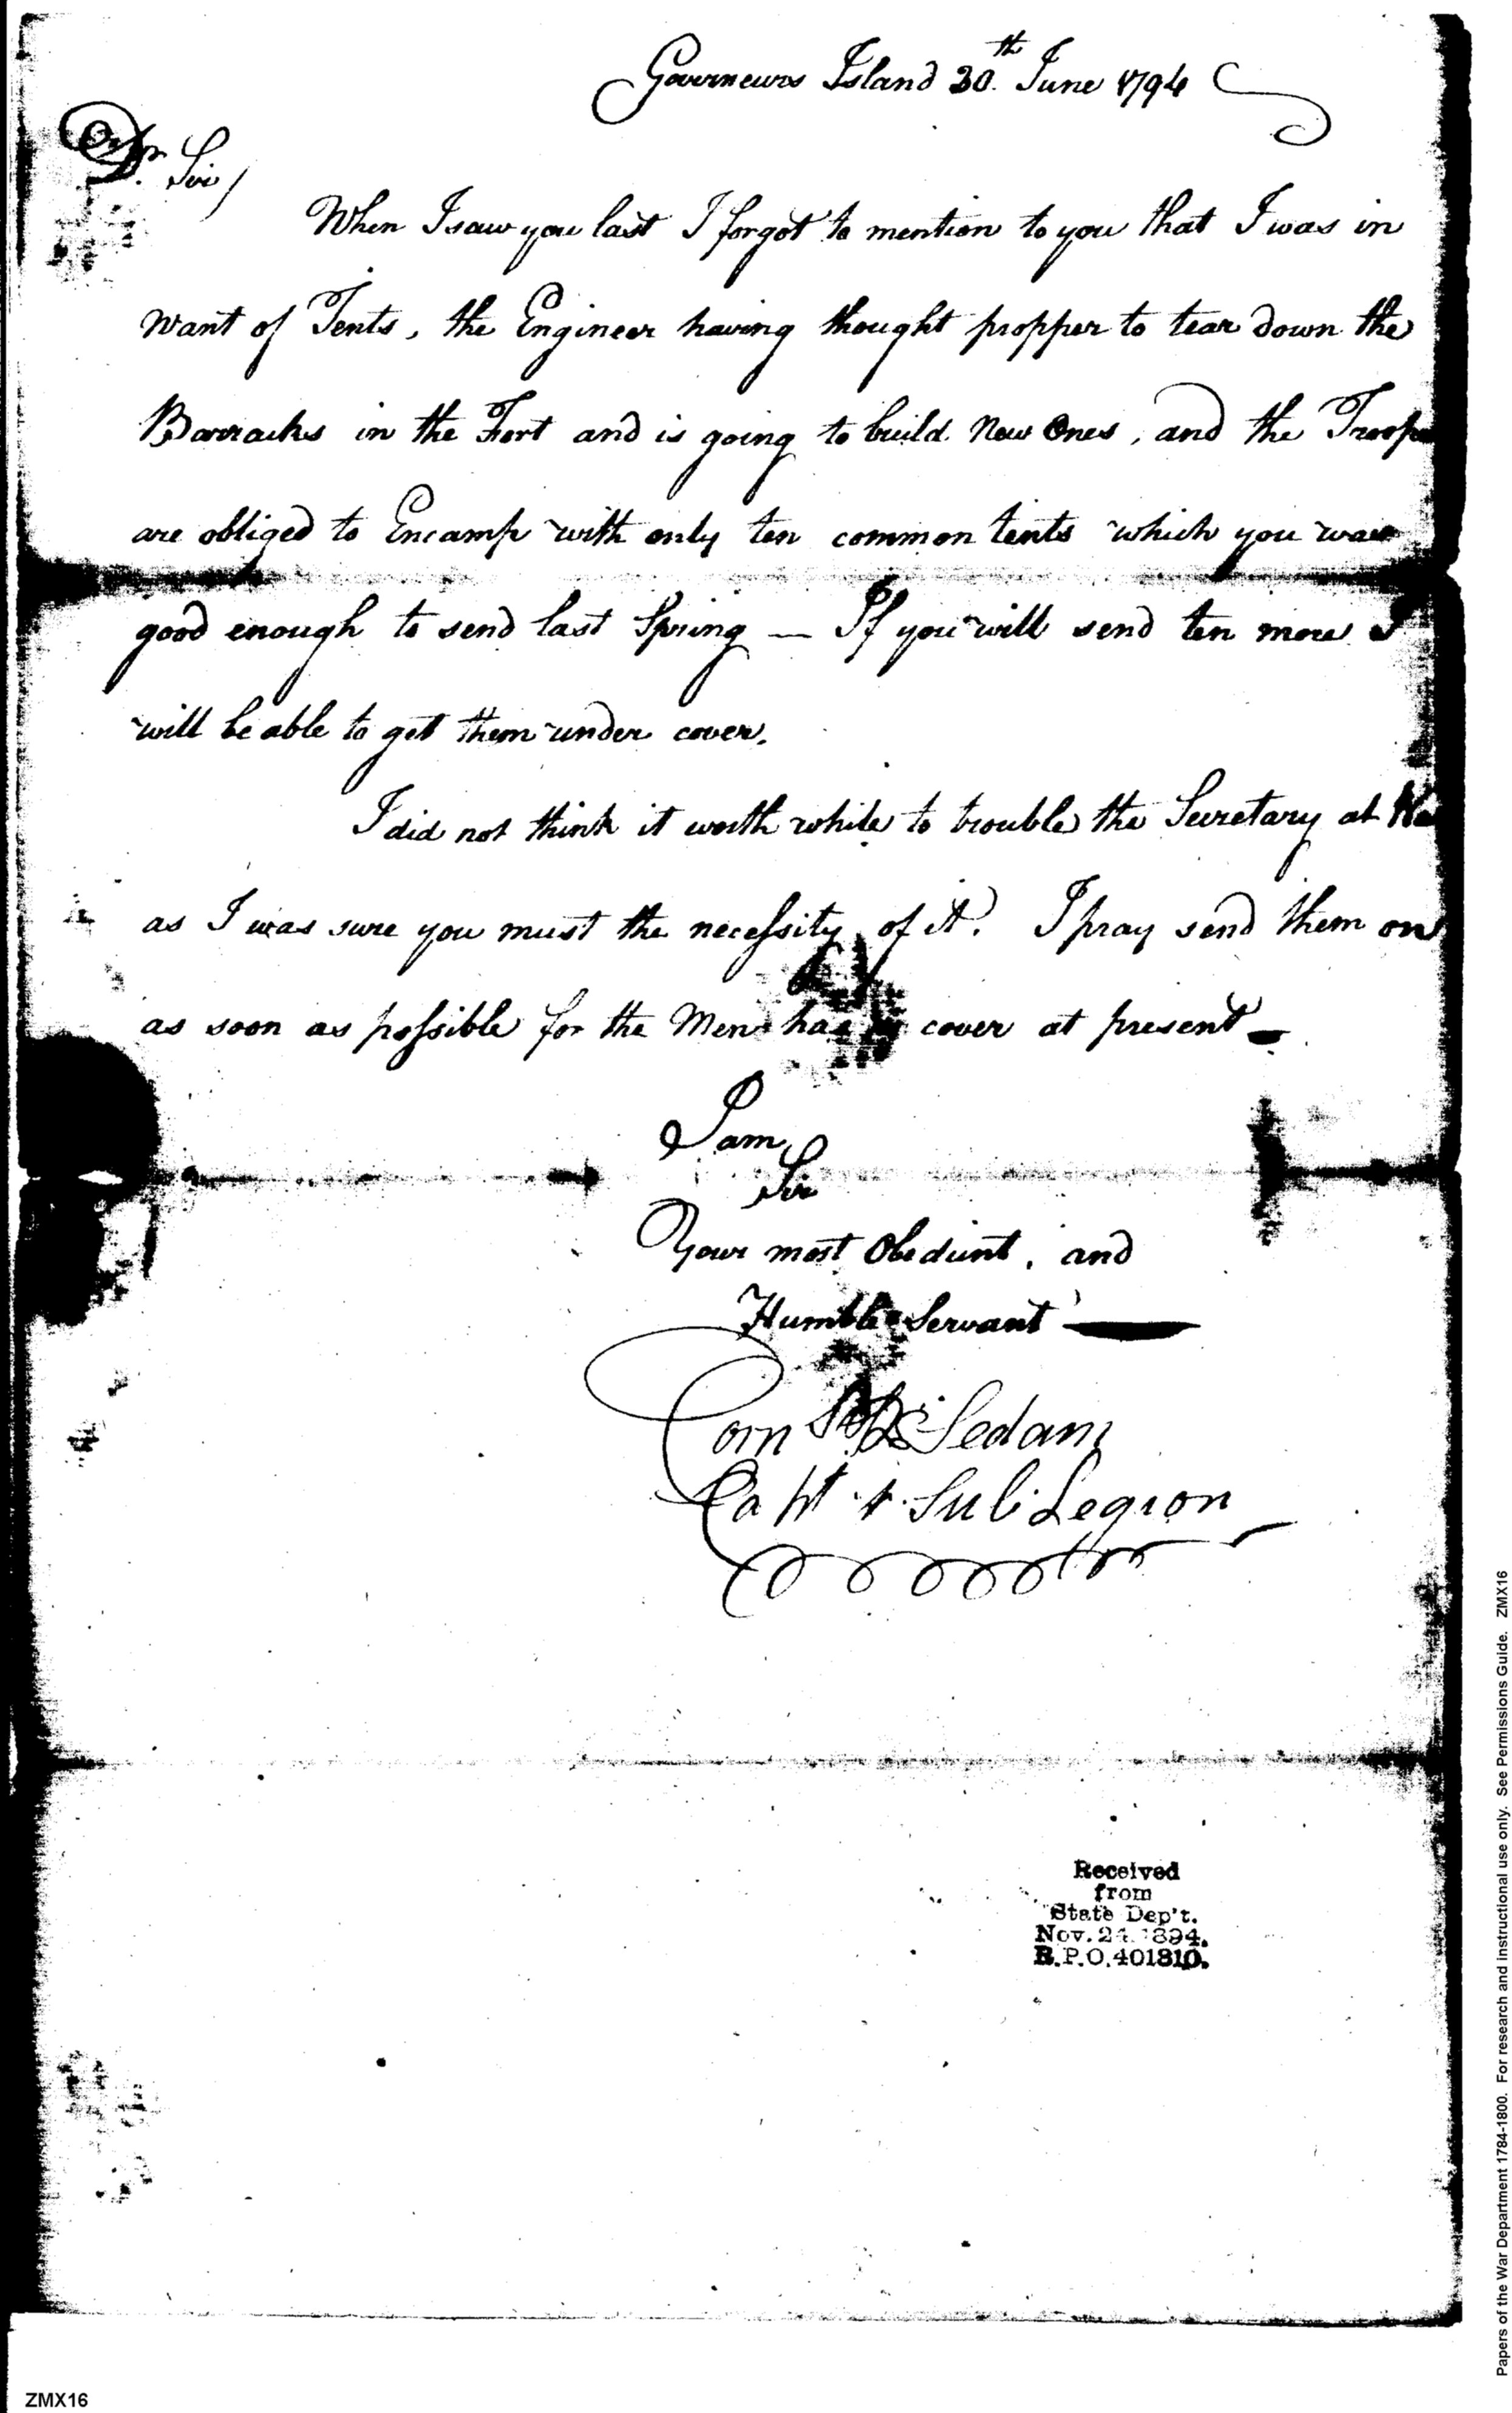 Governeurs Island 30.th June 1794
Dr. Sir/
When I saw you last I forgot to mention to you that I was in
want of Tents, the Engineer having thought propper to tear down the
Barracks in the Fort and is going to build New Ones, and the Troops
are obliged to Encamp with only ten common tents which you was
good enough to send last Spring — If you will send ten more I
will be able to get them under cover.
I did not think it worth while to trouble the Secretary at War
as I was sure you must the necessity of it. I pray send them on
as soon as possible for the Men has cover at present —
I am
Sir
Your most Obedient, and
Humble Servant —
Corn Sedam
Capt 4 Sub Legion
Received
from
State Dep't.
Nov. 24 1894.
R.P.O. 401810.
Papers of the War Department 1784-1800. For research and instructional use only. See Permissions Guide. ZMX16
ZMX16